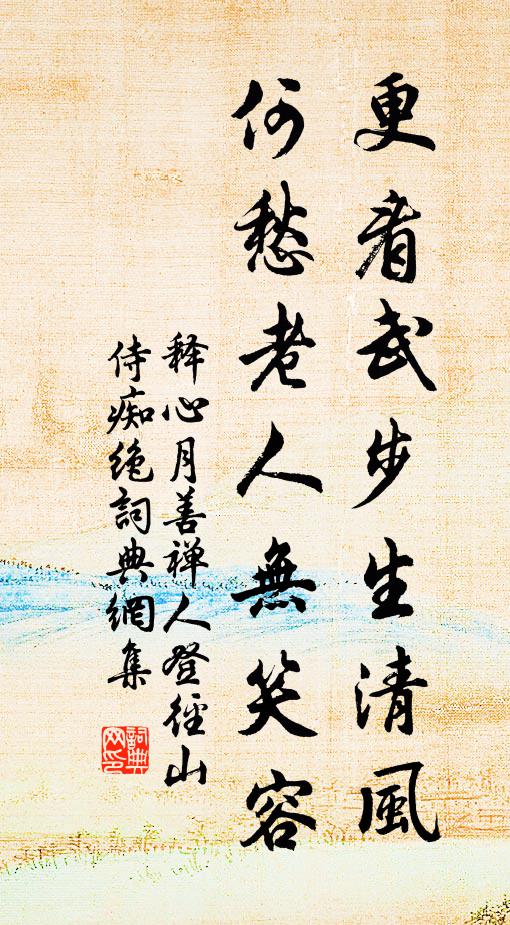 更看武步生清風
何愁老人無笑容
釋心月善禅人登徑山
侍痴絶詞典網集
詞典
网印